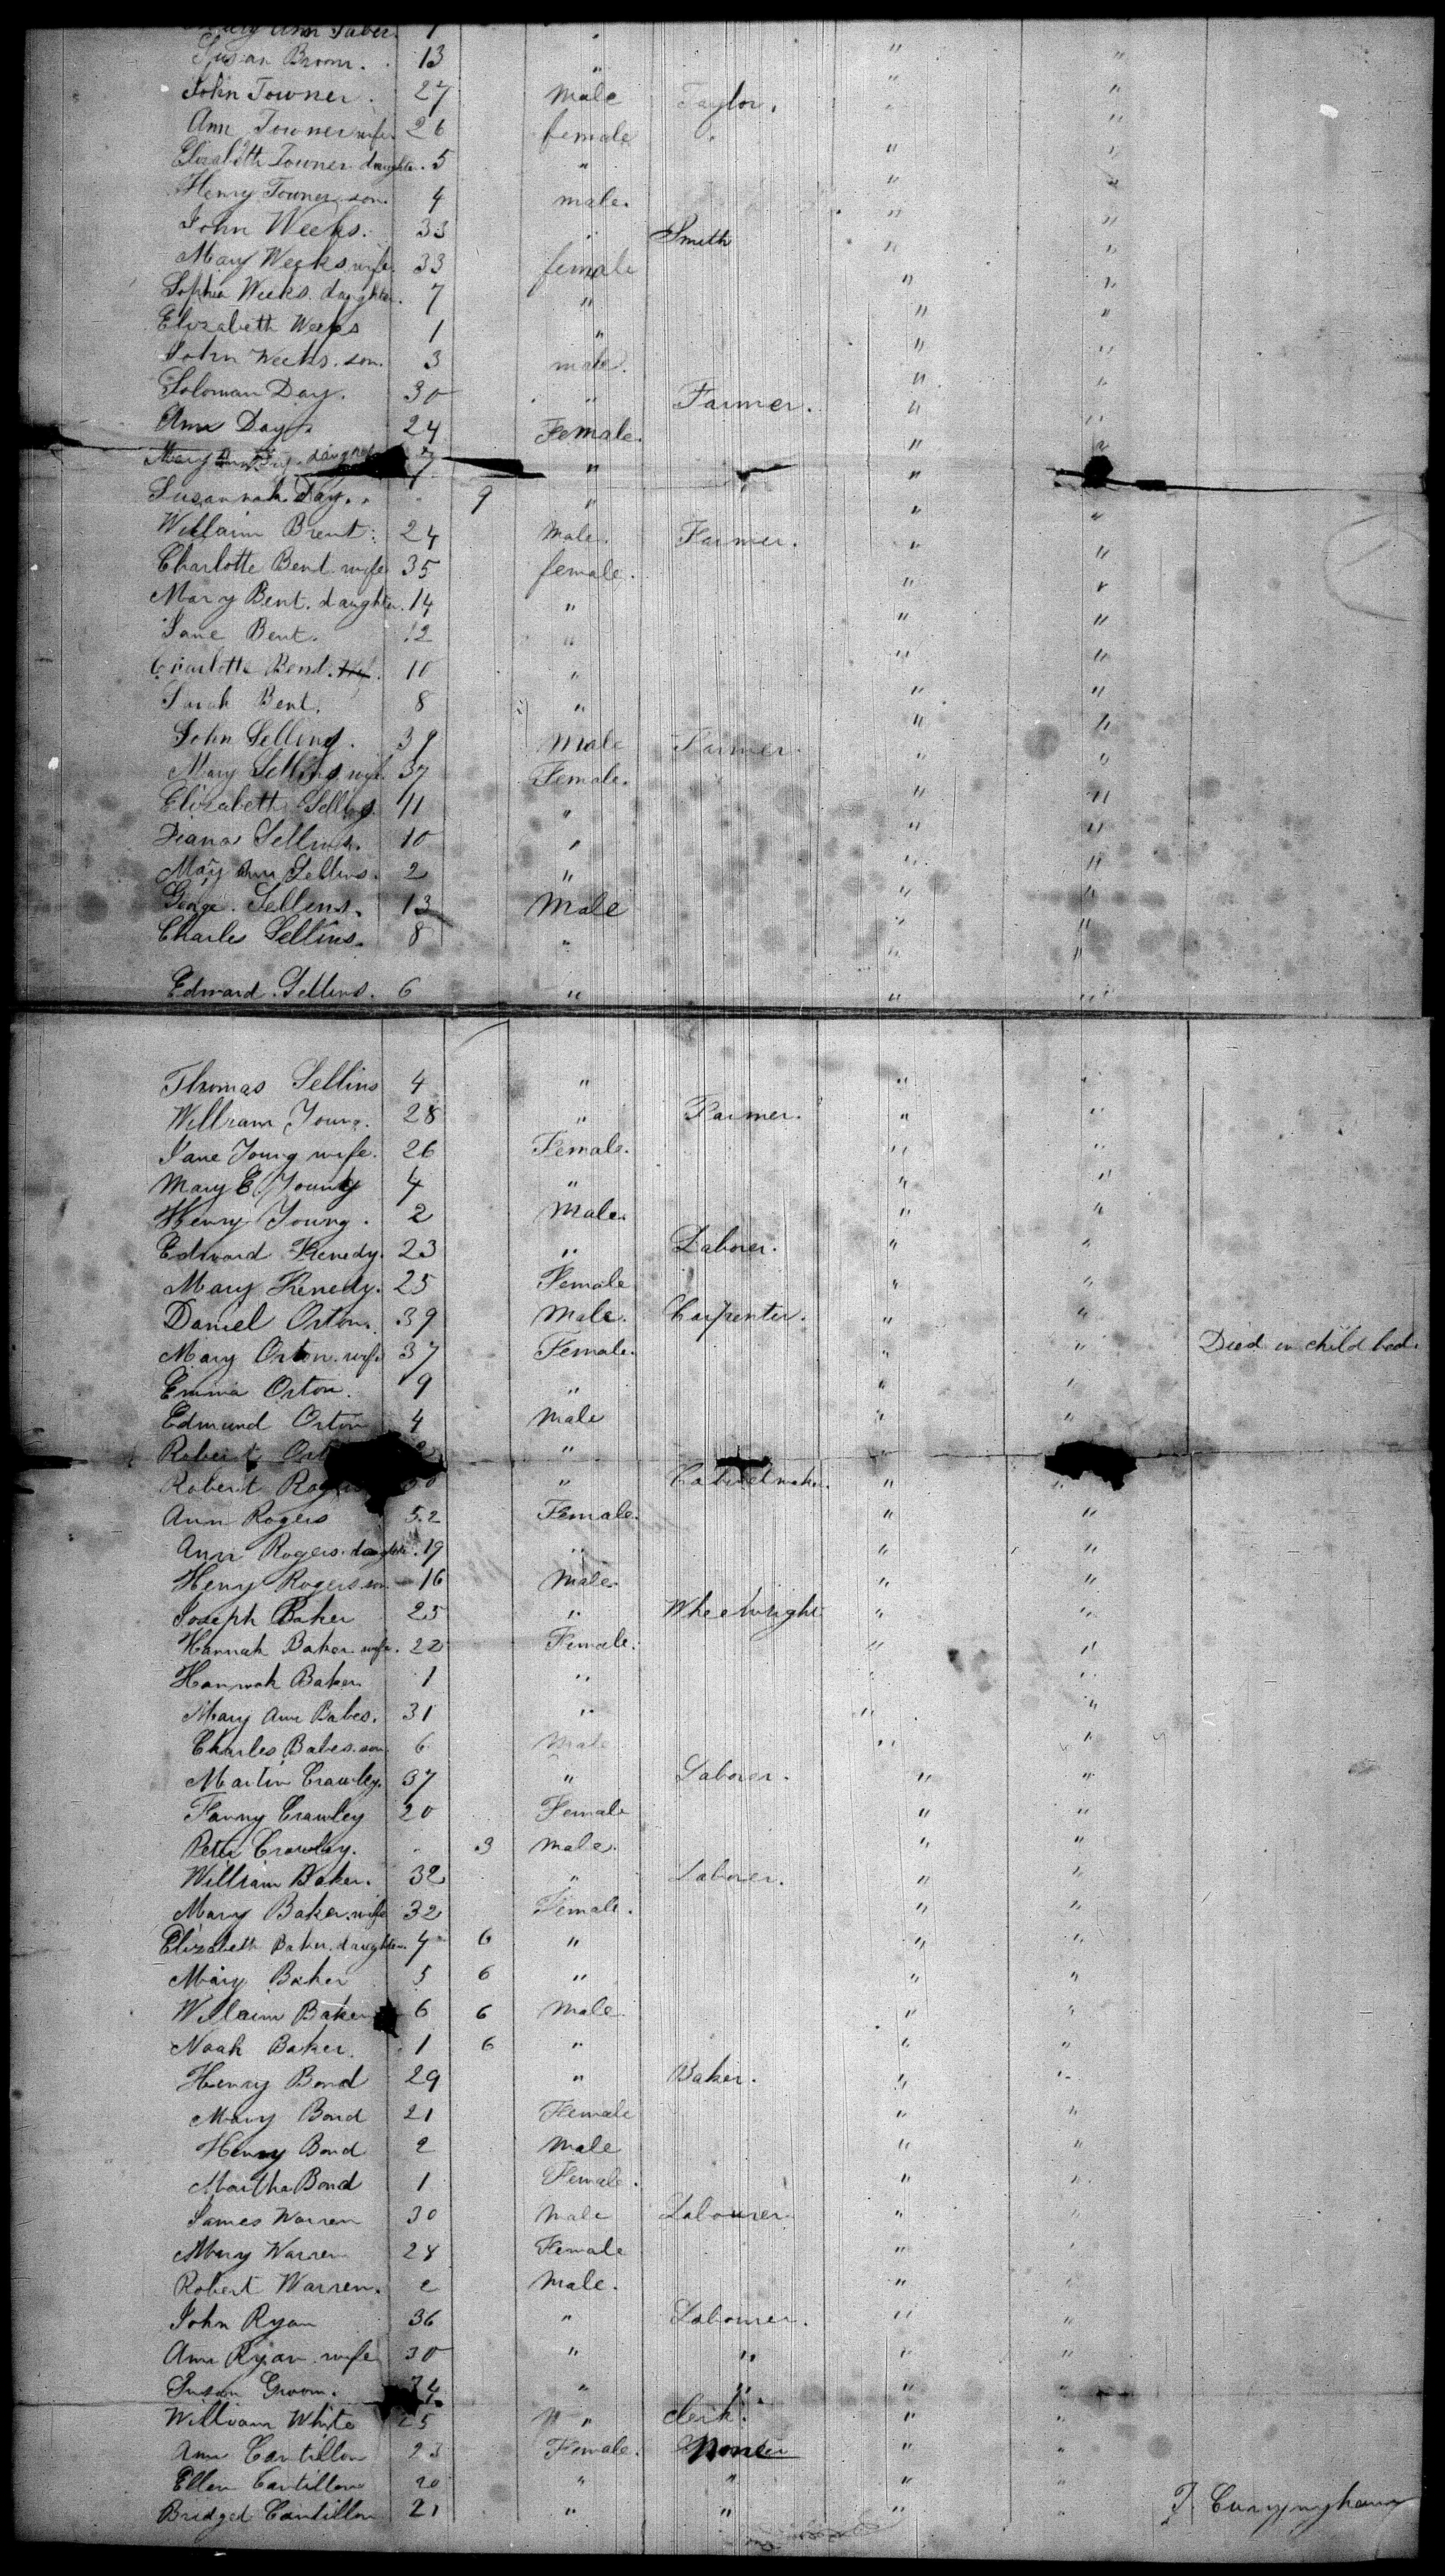 Mary Ann Taber. 1 "
Susan Broom. 13 " " "
John Towner. 27 Male Taylor. " "
Ann Towner wife 26 female " " "
Elizabeth Towner daughter. 5 " " "
Henry Towner son. 4 male. " "
John Weeks. 33 " Smith " "
Mary Weeks wife. 33 female " "
Sophia Weeks daughter. 7 " " "
Elizabeth Weeks 1 " " "
John Weeks. son. 3 male. " "
Soloman Day. 30 " Farmer. " "
Ann Day. 24 Female. " "
Mary daughter " " "
Susannah Day. 9 " " " "
Willaim Brent. 24 Male. Farmer. " "
Charlotte Bent wife 35 female. " "
Mary Bent. daughter. 14 " " "
Jane Bent. 12 " " "
Charlotte Bent. 10 " " "
Sarah Bent. 8 " " "
John Sellins. 39 Male Farmer. " "
Mary Sellins wife. 37 Female. " "
Elizabeth Sellins. 11 " " "
Diana Sellins. 10 " " "
Mary Ann Sellins. 2 " " "
George. Sellens. 13 Male " "
Charles Sellins. 8 " " "
Edward. Sellins. 6 " " "
Thomas Sellins 4 " " "
William Young. 28 " Farmer. " "
Jane Young wife. 26 Female. " "
Mary E. Young 4 " " "
Henry Young. 2 Male. " "
Edward Kenedy. 23 " Laborer. " "
Mary Kenedy. 25 Female " "
Daniel Orton. 39 Male. Carpenter. " "
Mary Orton. wife 37 Female. " " Died in child bed.
Emma Orton. 9 " " "
Edmund Orton 4 Male " "
Robert " "
Robert Rogers " Cabinetmaker. " "
Ann Rogers 52 Female. " "
Ann Rogers. daughter. 19 " " "
Henry Rogers son 16 Male. " "
Joseph Baker 25 " Wheelwright " "
Hannah Baker. wife. 22 Female. " "
Hannah Baker. 1 " " "
Mary Ann Babes. 31 " " "
Charles Babes. son 6 Male " "
Martin Crawley. 37 " Laborer. " "
Fanny Crawley 20 Female " "
Peter Crawley. 3 Male. " "
William Baker. 32 " Laborer. " "
Mary Baker. wife 32 Female. " "
Elizabeth Baker. daughter. 7 6 " " "
Mary Baker 5 6 " " "
Willaim Baker 6 6 Male " "
Noah Baker. 1 6 " " "
Henry Bond 29 " Baker. " "
Mary Bond 21 Female " "
Henry Bond 2 Male " "
Martha Bond 1 Female. " "
James Warren 30 Male Labourer. " "
Mary Warren 28 Female " "
Robert Warren. 2 Male. " "
John Ryan 36 " Labourer. " "
Ann Ryan wife 30 " " " "
Susan Groom. " " " "
William White 25 " " Clerk. " "
Ann Cantillon 23 Female. None " "
Ellen Cantillon 20 " " " "
Bridget Cantillon 21 " " " "